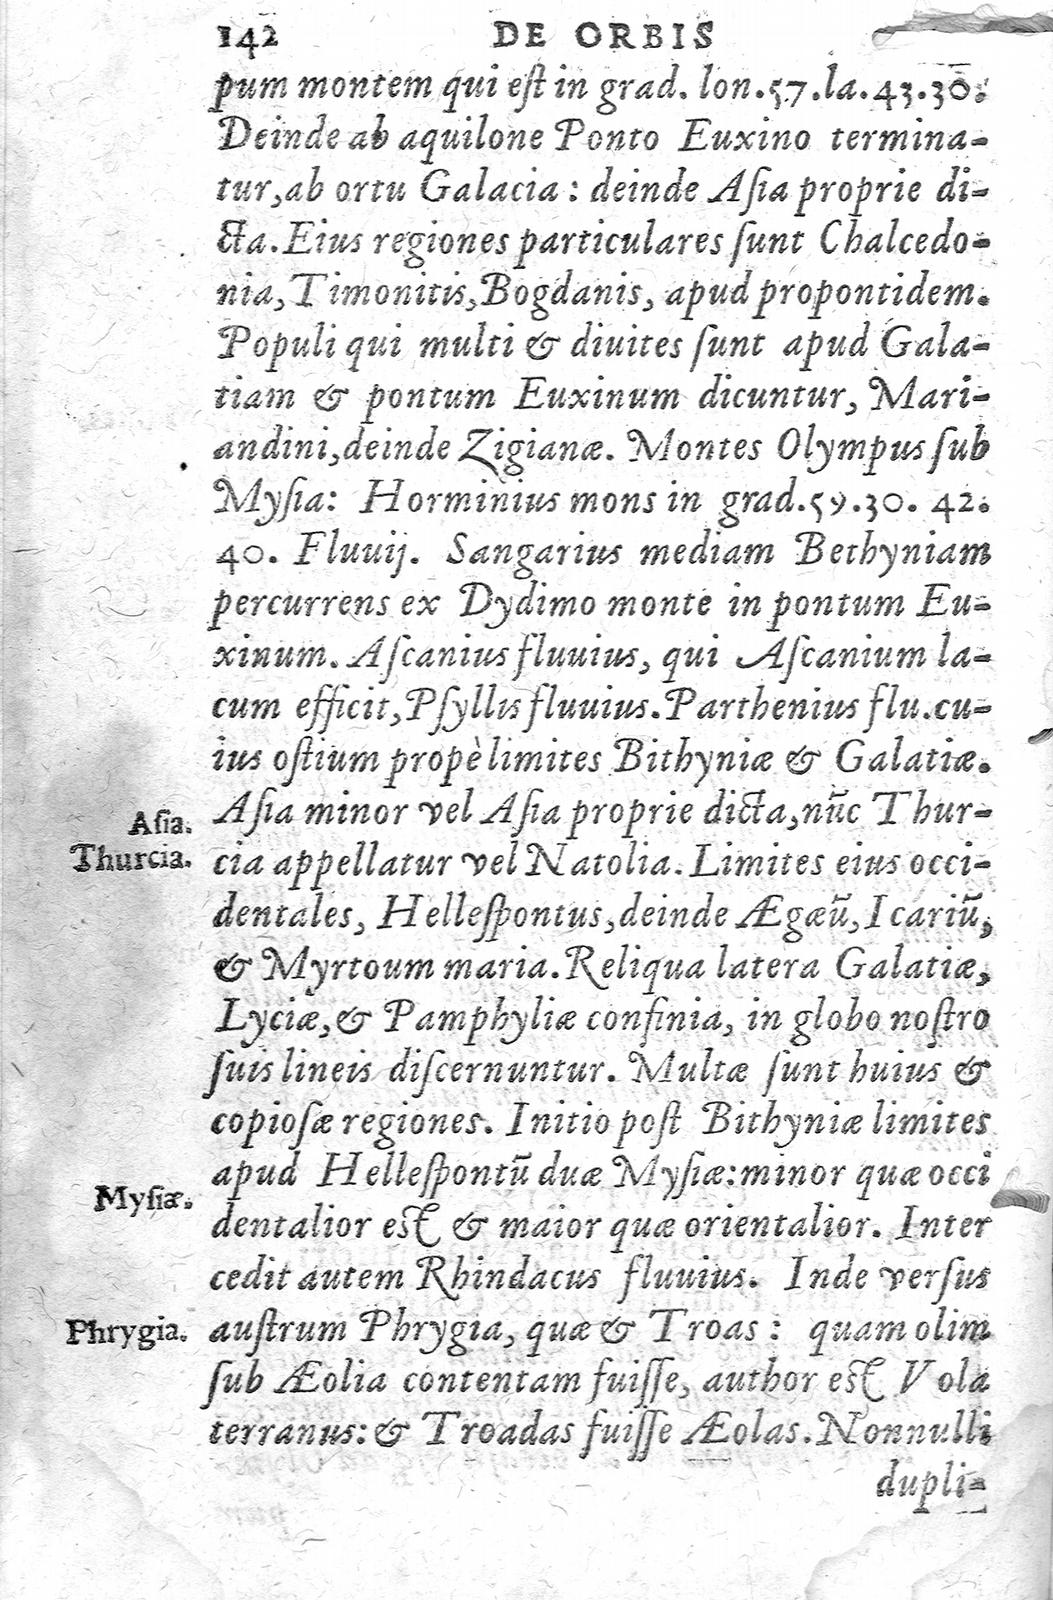 142 DE ORBIS
pum montem qui eſt in grad. lon.57.la.43.30.
Deinde ab aquilone Ponto Euxino termina-
tur,ab ortu Galacia : deinde Aſia proprie di-
cta.Eius regiones particulares ſunt Chalcedo-
nia,Timonitis,Bogdanis, apud propontidem.
Populi qui multi & diuites ſunt apud Gala-
tiam & pontum Euxinum dicuntur, Mari-
andini,deinde Zigianæ. Montes Olympus ſub
Myſia: Horminius mons in grad.59.30. 42.
40. Fluuij. Sangarius mediam Bethyniam
percurrens ex Dydimo monte in pontum Eu-
xinum. Aſcanius fluuius, qui Aſcanium la-
cum efficit,Pſyllis fluuius.Parthenius flu.cu-
ius oſtium propè limites Bithyniæ & Galatiæ.
Aſia.
Aſia minor vel Aſia proprie dicta,nūc Thur-
Thurcia.
cia appellatur vel Natolia.Limites eius occi-
dentales, Helleſpontus,deinde Ægæū,Icariū,
& Myrtoum maria.Reliqua latera Galatiæ,
Lyciæ,& Pamphyliæ confinia, in globo noſtro
ſuis lineis diſcernuntur. Multæ ſunt huius &
copioſæ regiones. Initio poſt Bithyniæ limites
apud Helleſpontū duæ Myſiæ:minor quæ occi
Myſiæ.
dentalior eſt & maior quæ orientalior. Inter
cedit autem Rhindacus fluuius. Inde verſus
Phrygia.
auſtrum Phrygia, quæ & Troas : quam olim
ſub Æolia contentam fuiſſe, author eſt Vola
terranus:& Troadas fuiſſe Æolas.Nonnulli
dupli-